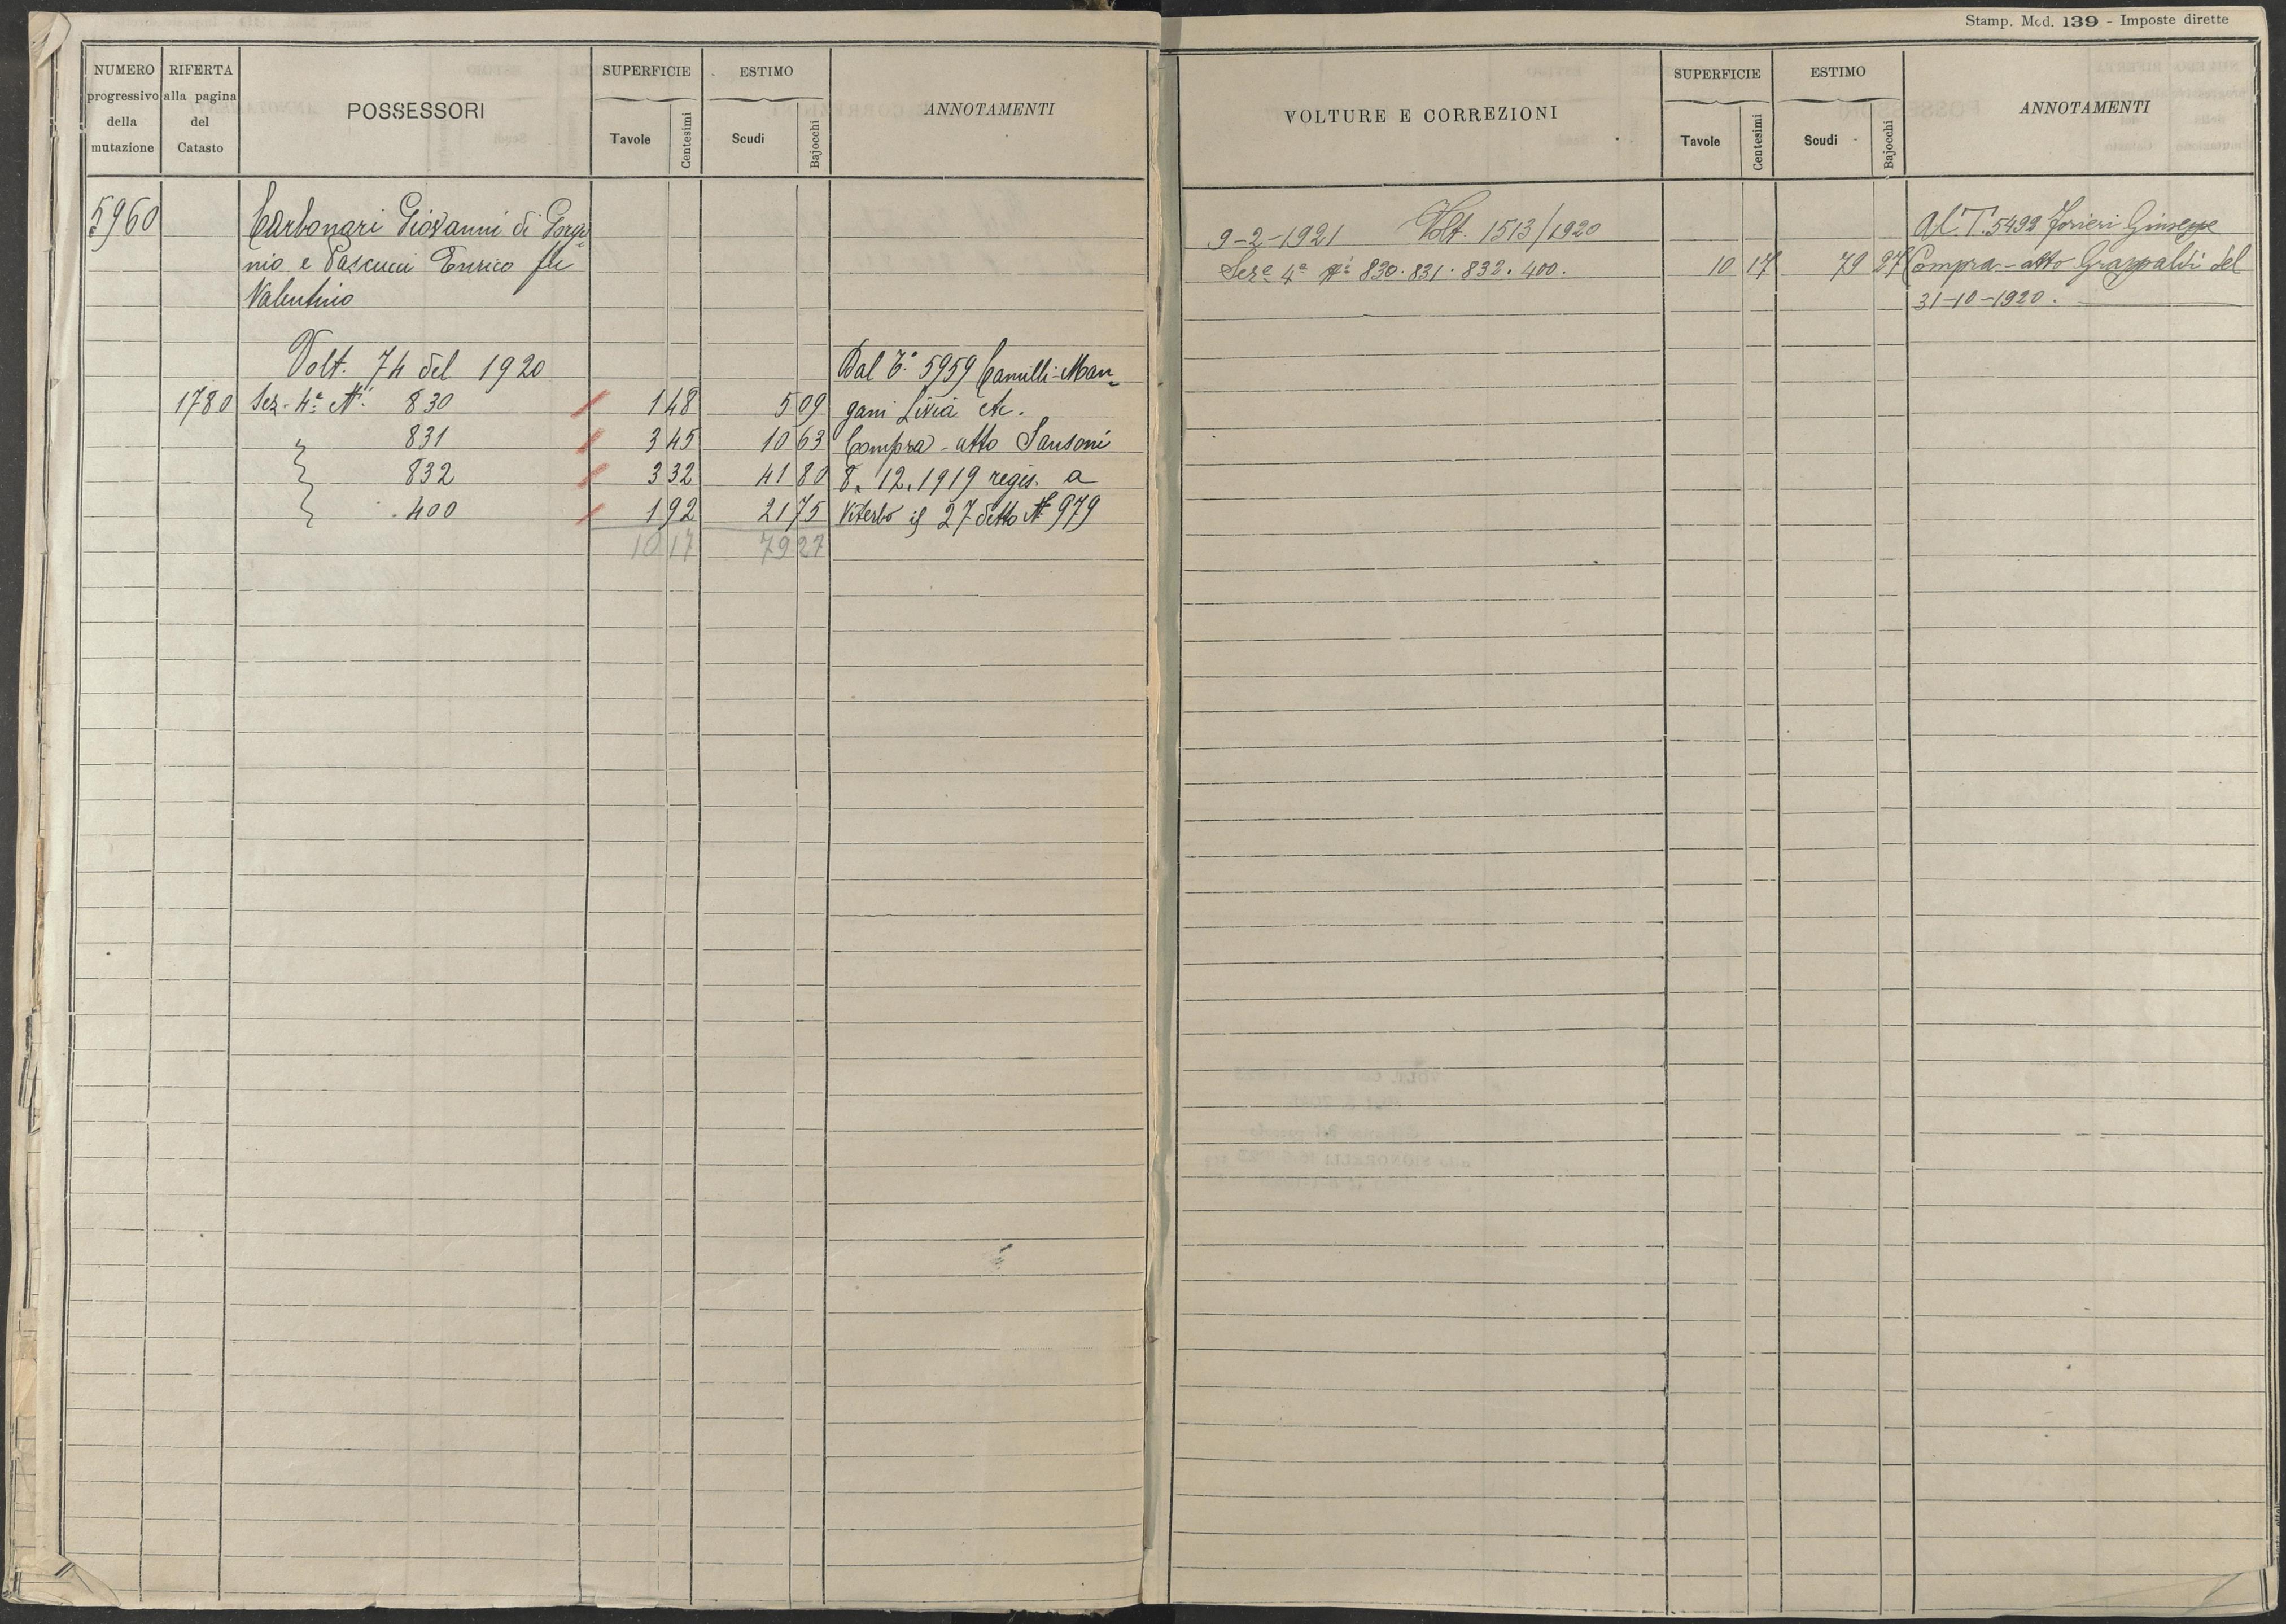 Stamp. Mod. 139 - Imposte dirette
NUMERO progressivo della mutazione
RIFERTA alla pagina del Catasto
POSSESSORI
SUPERFICIE
Tavole
Centesimi
ESTIMO
Scudi
Bajocchi
ANNOTAMENTI
5960 Carbonari Giovanni di
nio e Pascucci Enrico fu
Valentino
Volt. 74 del 1920 Dal T.° 5959 Camilli-Man-
1780 Sez. 4ª Nⁱ 830 1 48 5 09 gani Livia etc.
831 3 45 10 63 Compra - atto Sansoni
832 3 32 41 80 8. 12. 1919 regis. a
400 1 92 21 75 Viterbo il 27 detto N° 979
10 17 79 27
VOLTURE E CORREZIONI
SUPERFICIE
Tavole
Centesimi
ESTIMO
Scudi
Bajocchi
ANNOTAMENTI
9-2-1921 Volt. 1513/1920 Al T. 5492 Giuseppe
Sezᵉ 4ª Nⁱ 830. 831. 832. 400. 10 17 79 27 Compra - atto Grappaldi del
31-10-1920.